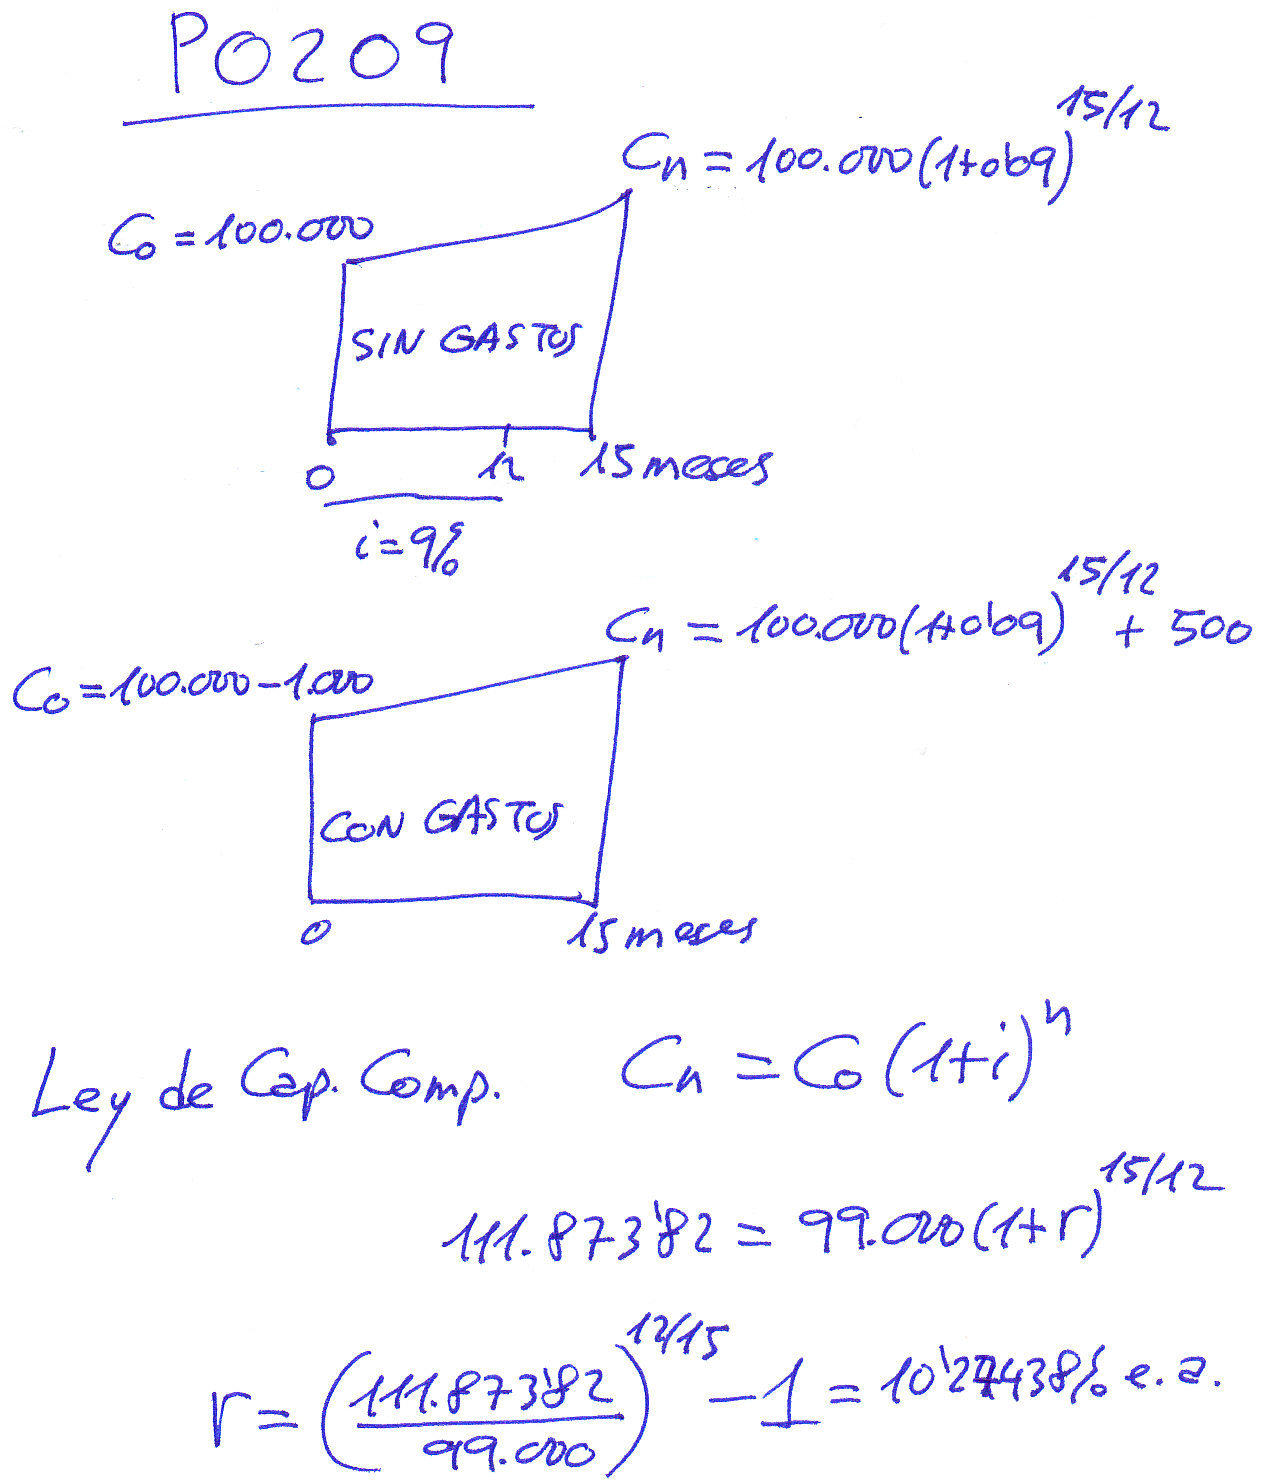 PO209
Cn = 100.000(1+0'09)^15/12
Co = 100.000
SIN GASTOS
0 12 15 meses
i = 9%
Cn = 100.000(1+0'09)^15/12 + 500
Co = 100.000 - 1.000
CON GASTOS
0 15 meses
Ley de Cap. Comp. Cn = Co (1+i)^n
111.873'82 = 99.000 (1+r)^15/12
r = (111.873'82 / 99.000)^12/15 - 1 = 10'27438% e.a.